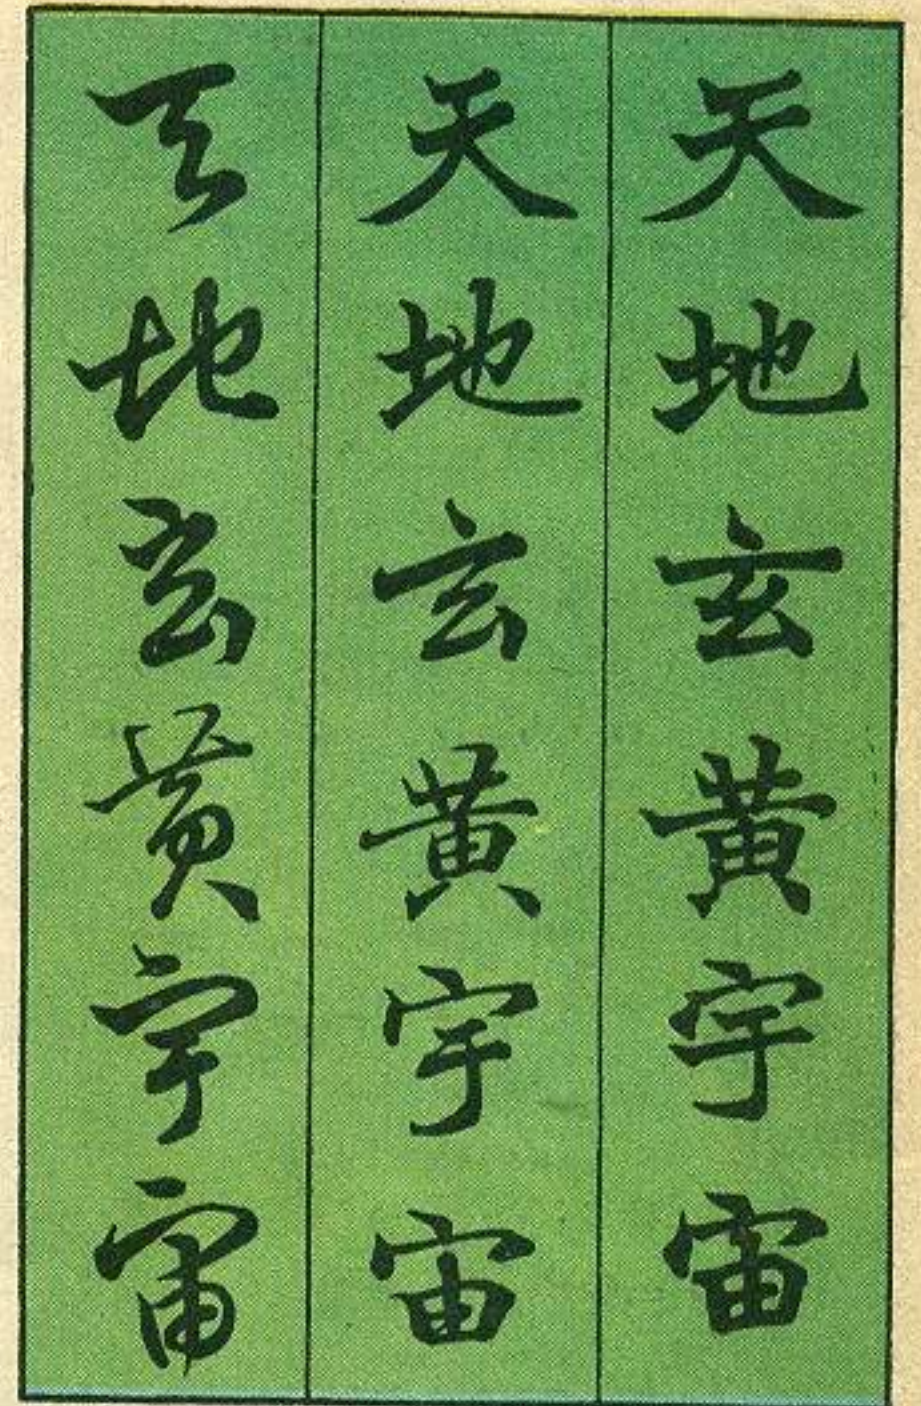 天地玄黃宇宙
天地玄黃宇宙
天地玄黃宇宙